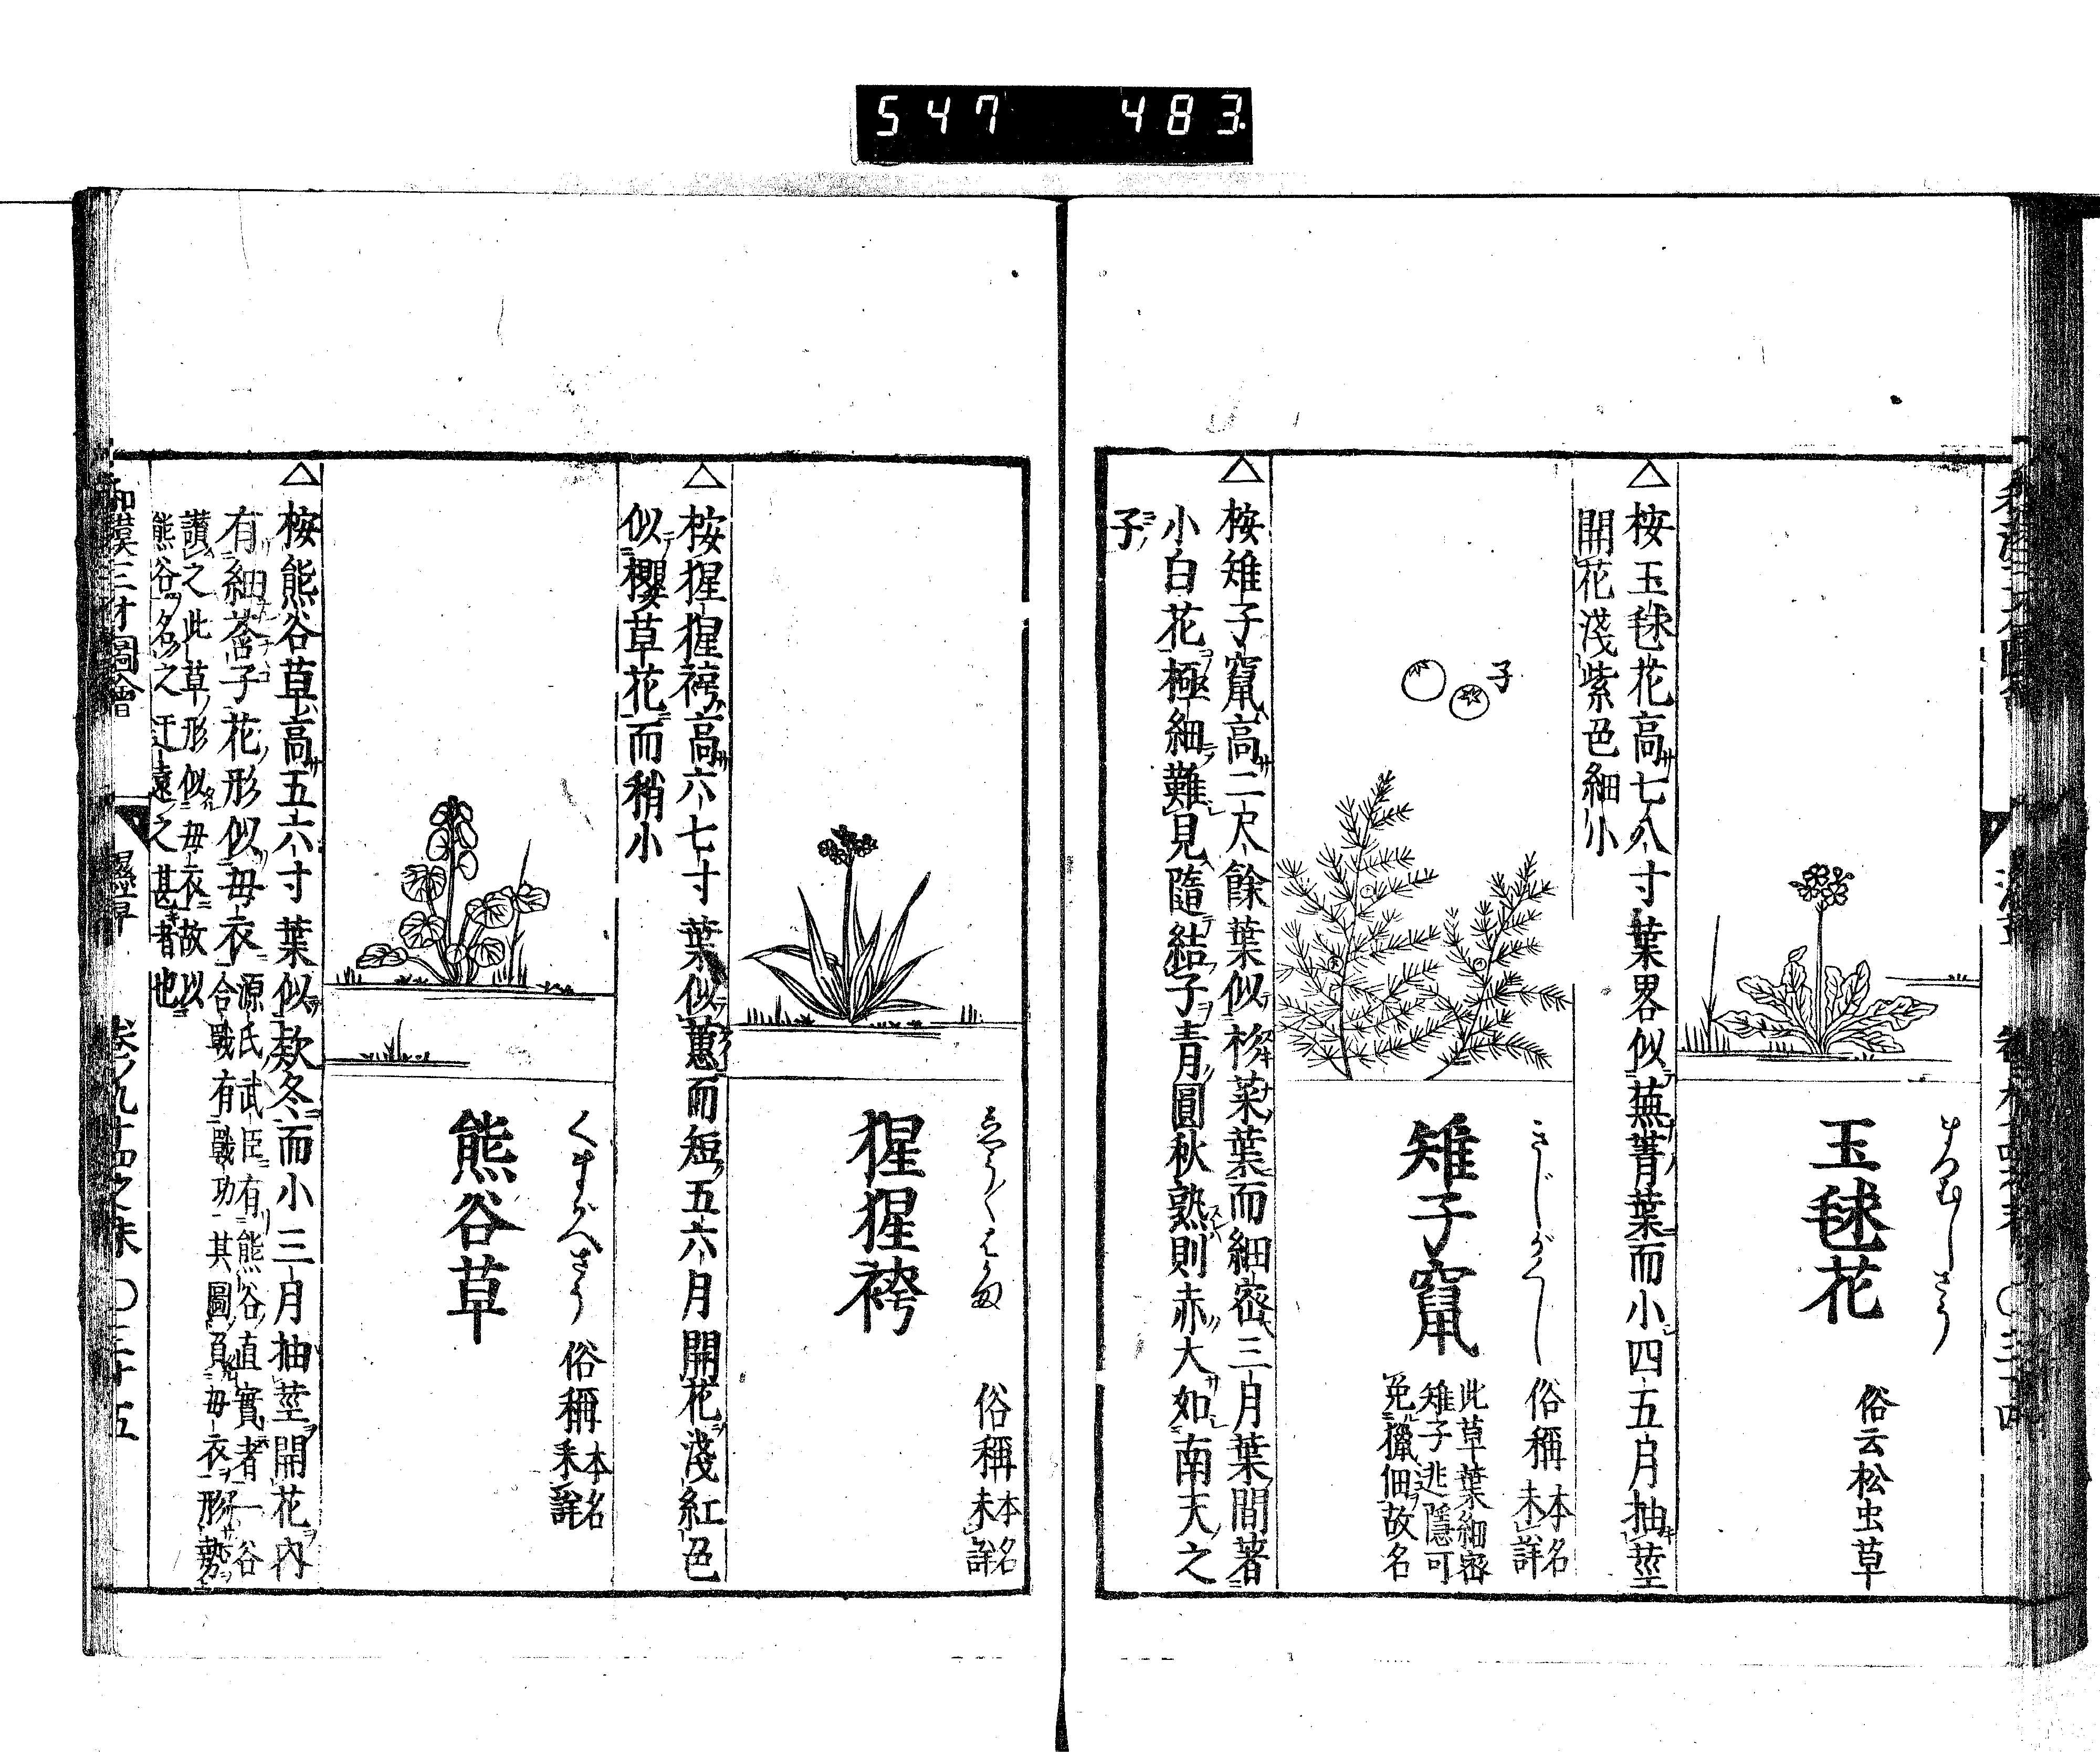 547 483
まつむしさう
玉毬花
俗云松虫草
△桉玉毬花高サ七八寸葉畧似蕪菁葉而小四五月抽莖
開花淺紫色細小
子
きじがくし
雉子竄
俗稱 本名未詳
此草葉細密
雉子迯隱可
免獵佃故名
△桉雉子竄高サ二尺餘葉似杉菜葉而細密三月葉間著
小白花極細難見隨結子青圓秋熟則赤大サ如南天之
子
しやう〲はかま
猩猩袴
俗稱 本名未詳
△桉猩猩袴高サ六七寸葉似蕙而短五六月開花淺紅色
似櫻草花而稍小
くまがへさう
熊谷草
俗稱 本名未詳
△桉熊谷草高サ五六寸葉似款冬而小三月抽莖開花内
有細蕊子花形似毋衣 源氏武臣有熊谷直實者一谷
合戰有戰功其圖負毋衣形勢
讃之此草形似毋衣故以
熊谷名之迂遠之甚者也
和漢三才圖會 濕草 卷ノ九十四之末 〇三十五